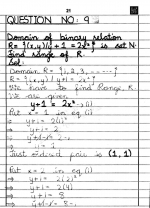 21
QUESTION NO: 9
Domain of binary relation
R = {(x,y) | y + 1 = 2x²} is set N.
Find range of R.
Sol:
Domain R = {1, 2, 3, ------}
R = {(x,y) | y+1 = 2x²}
We have to find Range R.
We are given
y+1 = 2x² → (i)
Put x = 1 in eq (i)
⇒ y+1 = 2(1)²
⇒ y+1 = 2
⇒ y = 2-1
⇒ y = 1
First ordered pair is (1, 1)
Put x = 2 in eq (i)
⇒ y+1 = 2(2)²
⇒ y+1 = 2(4)
⇒ y+1 = 8